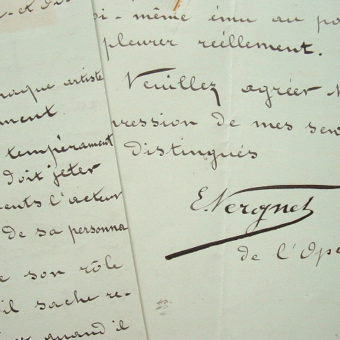 et di
haque artiste
ment
tempérament
doit jeter
ents l'acteur
de sa personna
e son rôle
il sache re-
et quand il
oi-même ému au po
pleurer réellement.
Veuillez agréer
pression de mes sen
distingués
E. Vergnet
de l'Opé